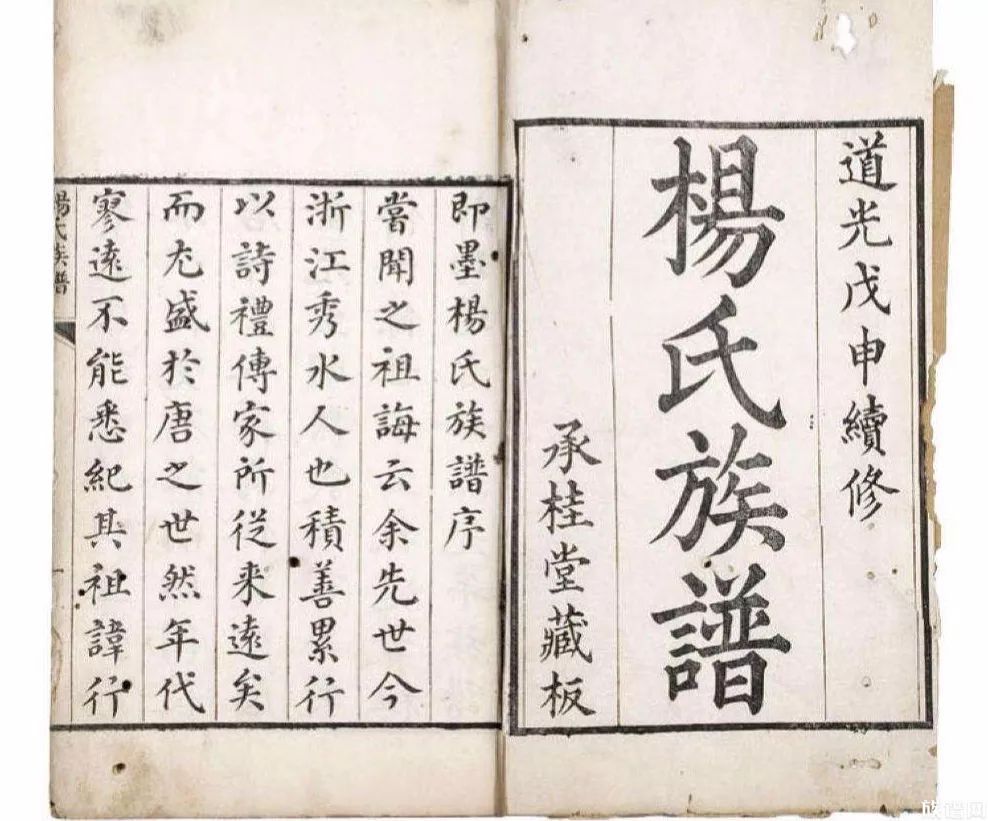 道光戊申續修
楊氏族譜
承桂堂藏板
即墨楊氏族譜序
嘗聞之祖誨云余先世今
浙江秀水人也積善累行
以詩禮傳家所從来遠矣
而尤盛於唐之世然年代
寥遠不能悉紀其祖諱行
楊氏族譜
族谱网